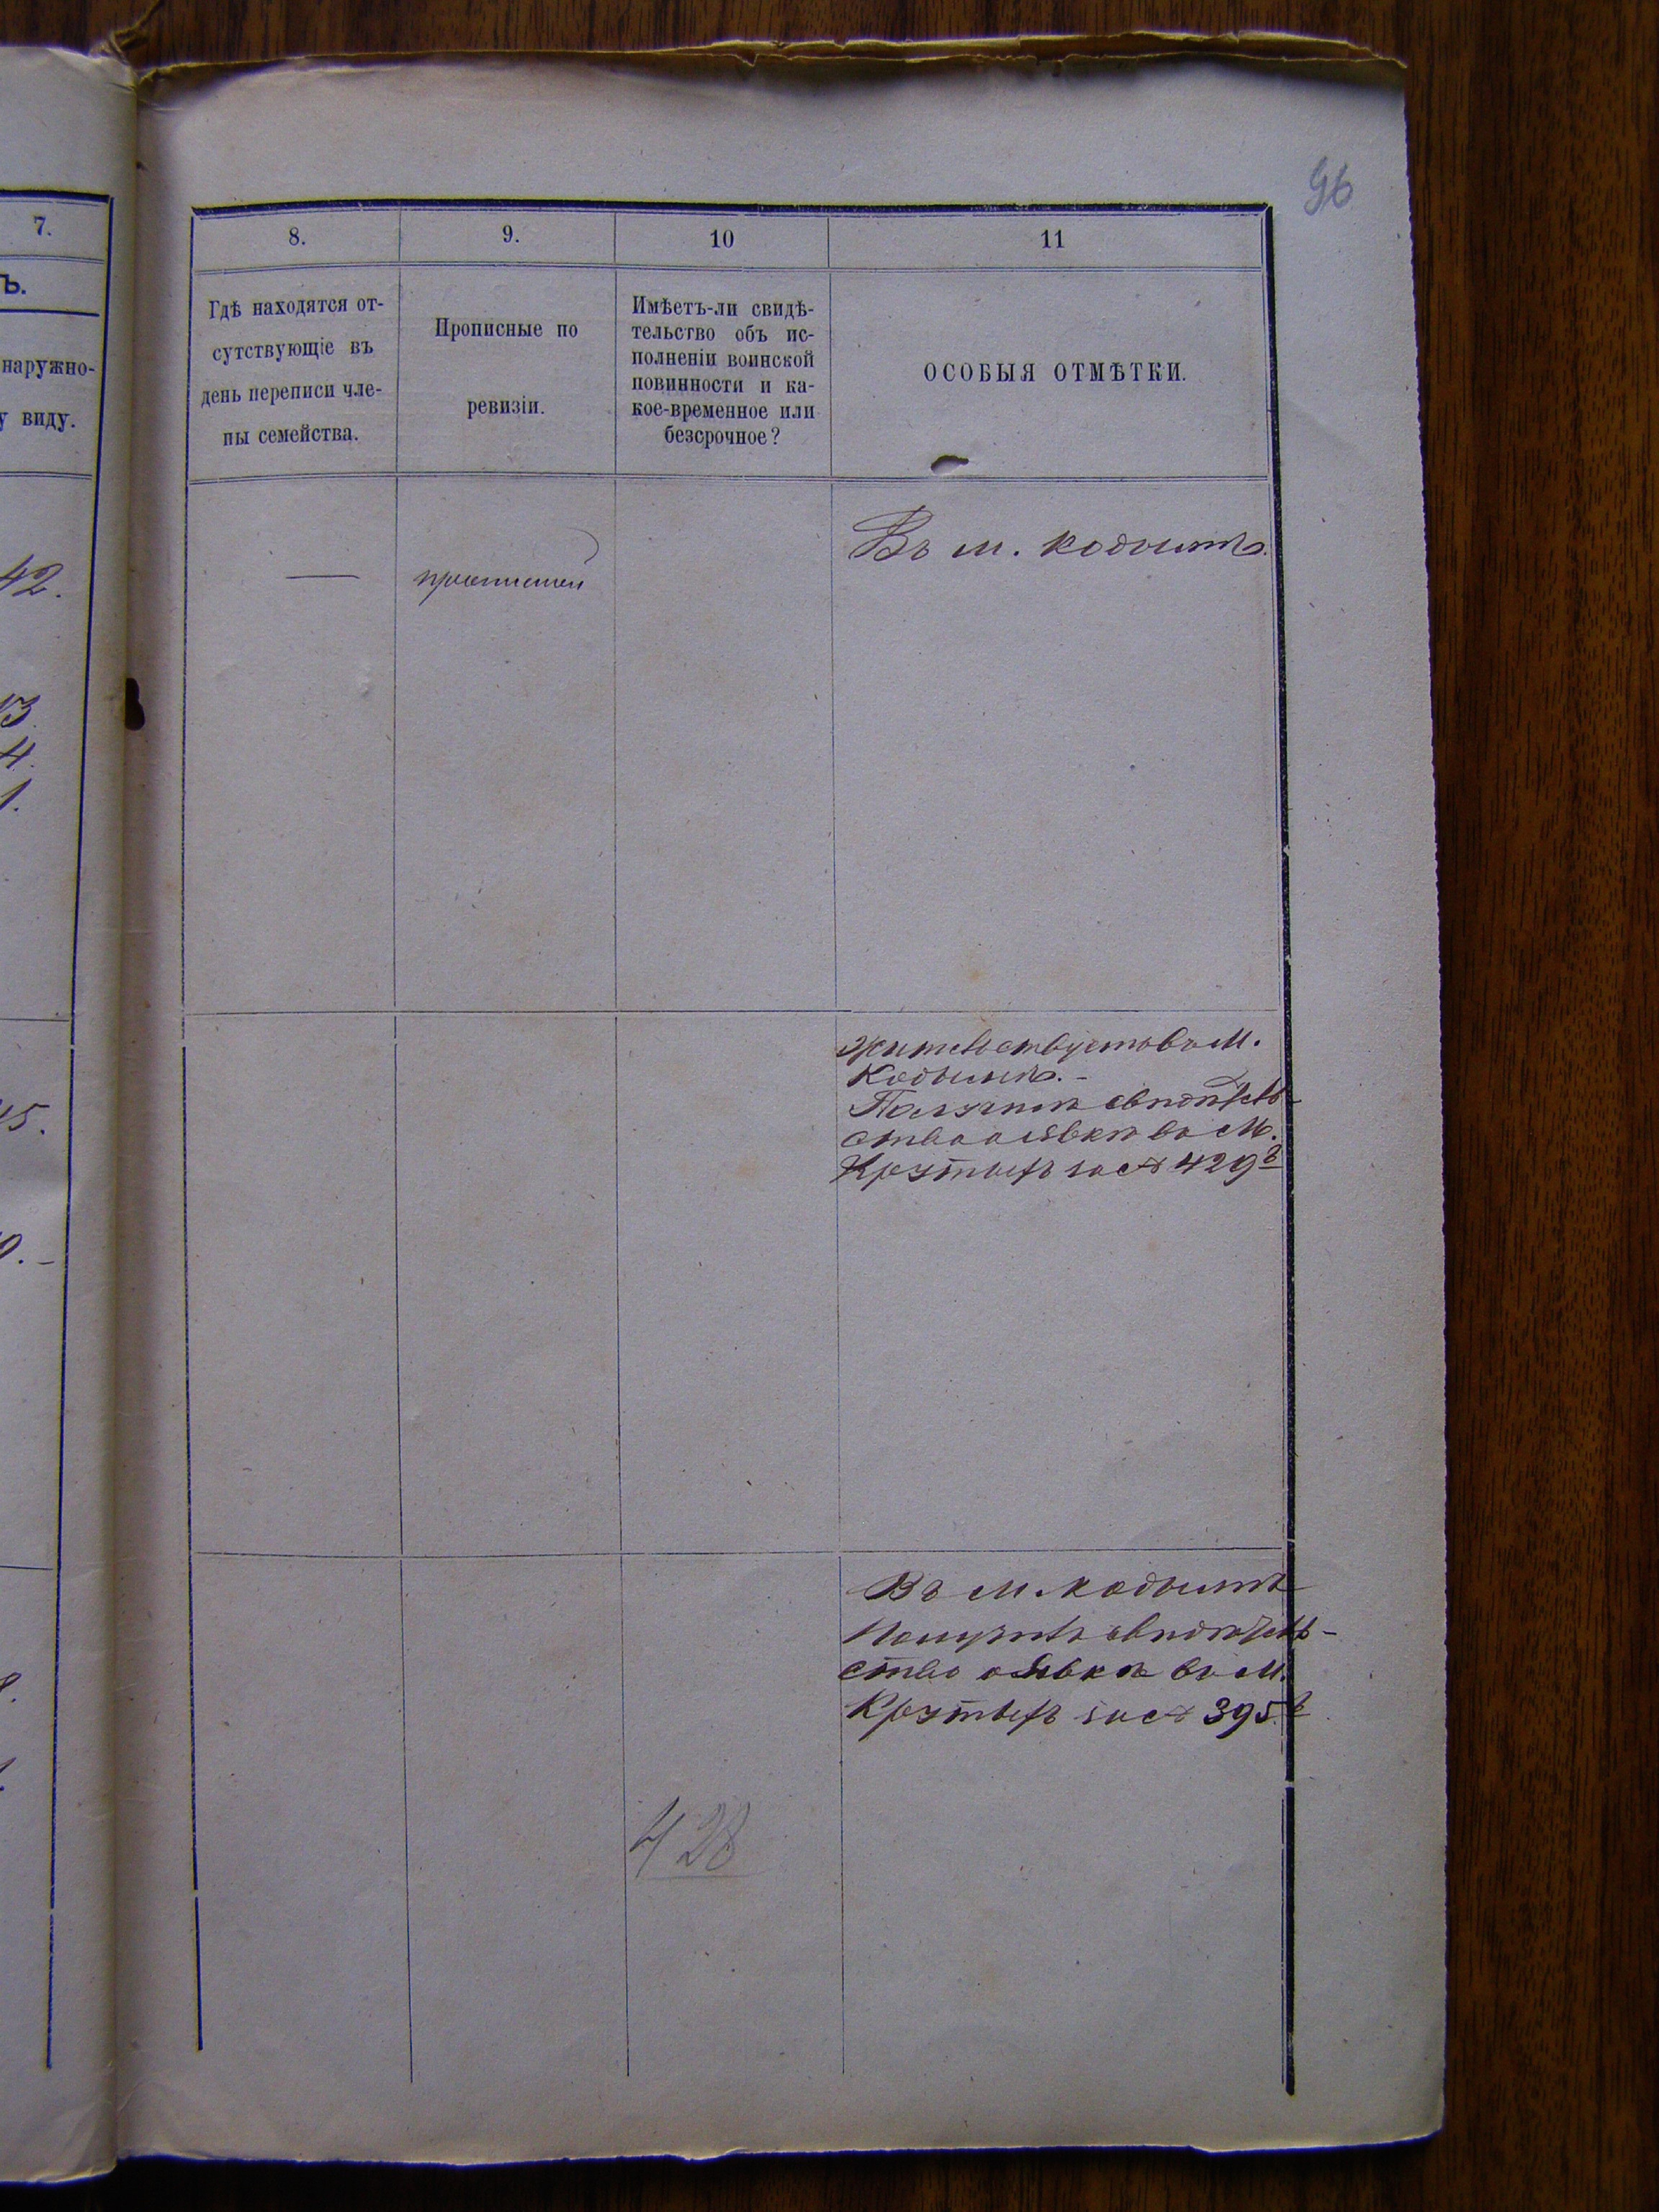 96
7.
8.
9.
10
11
ъ.
наружно-
у виду.
Гдѣ находятся от-
сутствующіе въ
день переписи чле-
ны семейства.
Прописные по
ревизіи.
Имѣетъ-ли свидѣ-
тельство объ ис-
полненіи воинской
повинности и ка-
кое-временное или
безсрочное?
ОСОБЫЯ ОТМѢТКИ.
42.
13.
4.
1.
—
Въ м. Кодымѣ.
15.
0.-
Жительствуетъ въ М.
Кодымѣ.-
Получилъ свидѣтель-
ство о явкѣ въ М.
Крутыхъ за № 429
Въ М. Кодымѣ
Получилъ свидѣтель-
ство о явкѣ въ М.
Крутыхъ за № 395
428